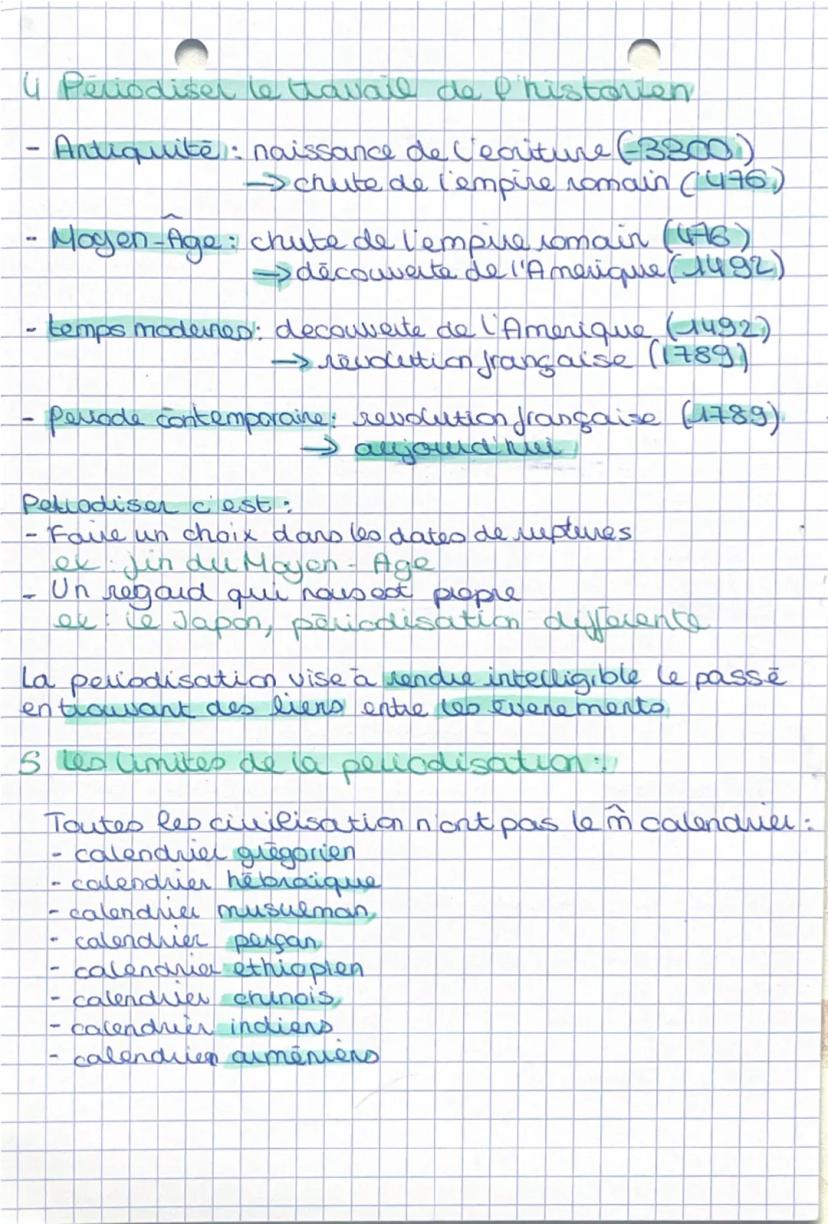 4 Périodiser le travail de l'historien
- Antiquité : naissance de l'ecriture (-3300)
→ chute de l'empire romain (476)
- Moyen-Âge : chute de l'empire romain (476)
→ découverte de l'Amerique (1492)
- temps modernes : decouverte de l'Amerique (1492)
→ révolution française (1789)
- Periode contemporaine : revolution française (1789)
→ aujourd'hui
Periodiser c'est :
- Faire un choix dans les dates de ruptures
ex : fin du Moyen-Age
- Un regard qui nous est propre
ex : le Japon, périodisation différente
La periodisation vise à rendre intelligible le passé
en trouvant des liens entre les evenements
5 les limites de la periodisation :
Toutes les civilisation n'ont pas le m̂ calendrier :
- calendrier grégorien
- calendrier hébraïque
- calendrier musulman
- calendrier persan
- calendrier ethiopien
- calendrier chinois
- calendrier indiens
- calendrier arméniens